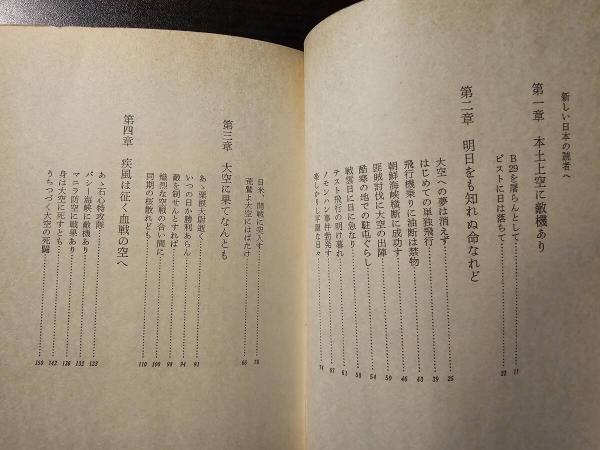 新しい日本の読者へ
第一章　本土上空に敵機あり
B29を屠らんとして……11
ピストに日は落ちて……22
第二章　明日をも知れぬ命なれど
大空への夢は消えず……25
はじめての単独飛行……39
飛行機乗りに油断は禁物……43
朝鮮海峡横断に成功す……46
匪賊討伐に大空の出陣……50
酷寒の地での駐屯ぐらし……54
戦雲日に日に急なり……58
テスト飛行の明け暮れ……61
ノモンハン事件勃発す……67
楽しかりし平穏な日々……74
第三章　大空に果てなんとも
日米、開戦に突入す……78
荒鷲よ大空にはばたけ……86
あゝ栗根大尉逝く……91
いつの日か勝利あらん……94
敵を制せんとすれば……99
熾烈な空戦の合い間に……106
同期の桜散れども……110
第四章　疾風は征く血戦の空へ
あゝ石心特攻隊……123
バシー海峡に敵機あり……132
マニラ防空に戦果あり……136
身は大空に死すとも……142
うちつづく大空の死闘……150